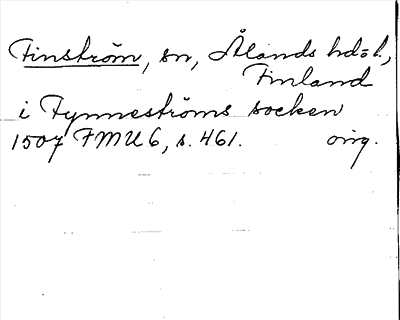 Finström, sn, Ålands hd=l,
Finland
i Fynneströms socken
1507 FMU 6, s. 461. orig.